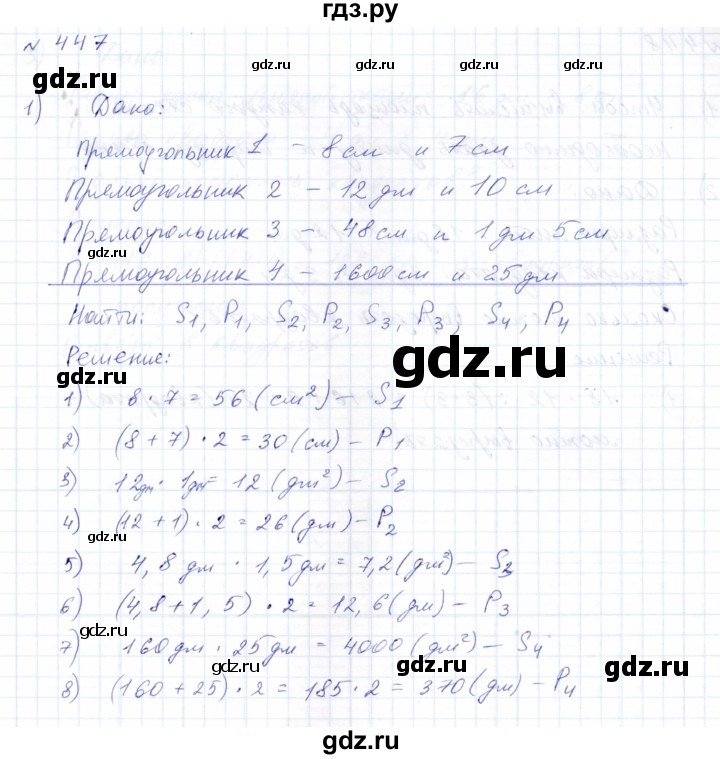 гдз.ру
№ 447
gdz.ru gdz.ru gdz.ru
1) Дано:
gdz.ru
Прямоугольник 1 – 8 см и 7 см
Прямоугольник 2 – 12 дм и 10 см
Прямоугольник 3 – 48 см и 1 дм 5 см
gdz.ru gdz.ru
Прямоугольник 4 – 1600 см и 25 дм
Найти: S1, P1, S2, P2, S3, P3, S4, P4
gdz.ru
Решение:
gdz.ru gdz.ru
1) 8 · 7 = 56 (см²) – S1
2) (8 + 7) · 2 = 30 (см) – P1
3) 12дм · 1дм = 12 (дм²) – S2
gdz.ru
4) (12 + 1) · 2 = 26 (дм) – P2
gdz.ru gdz.ru
5) 4,8 дм · 1,5 дм = 7,2 (дм²) – S3
6) (4,8 + 1,5) · 2 = 12,6 (дм) – P3
gdz.ru
7) 160 дм · 25 дм = 4000 (дм²) – S4
gdz.ru gdz.ru
8) (160 + 25) · 2 = 185 · 2 = 370 (дм) – P4
gdz.ru